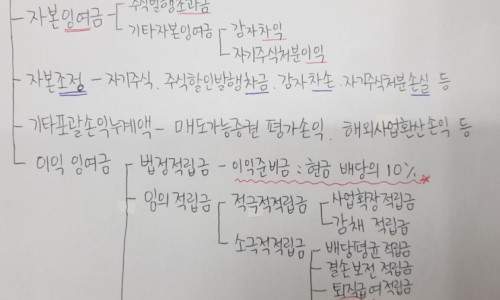 주식발행초과금
자본잉여금
기타자본잉여금
감자차익
자기주식처분이익
자본조정 - 자기주식, 주식할인발행차금, 감자차손, 자기주식처분손실 등
기타포괄손익누계액 - 매도가능증권 평가손익, 해외사업환산손익 등
이익 잉여금
법정적립금 - 이익준비금 : 현금 배당의 10% *
임의 적립금
적극적적립금
사업확장적립금
감채 적립금
소극적적립금
배당평균 적립금
결손보전 적립금
퇴직급여적립금